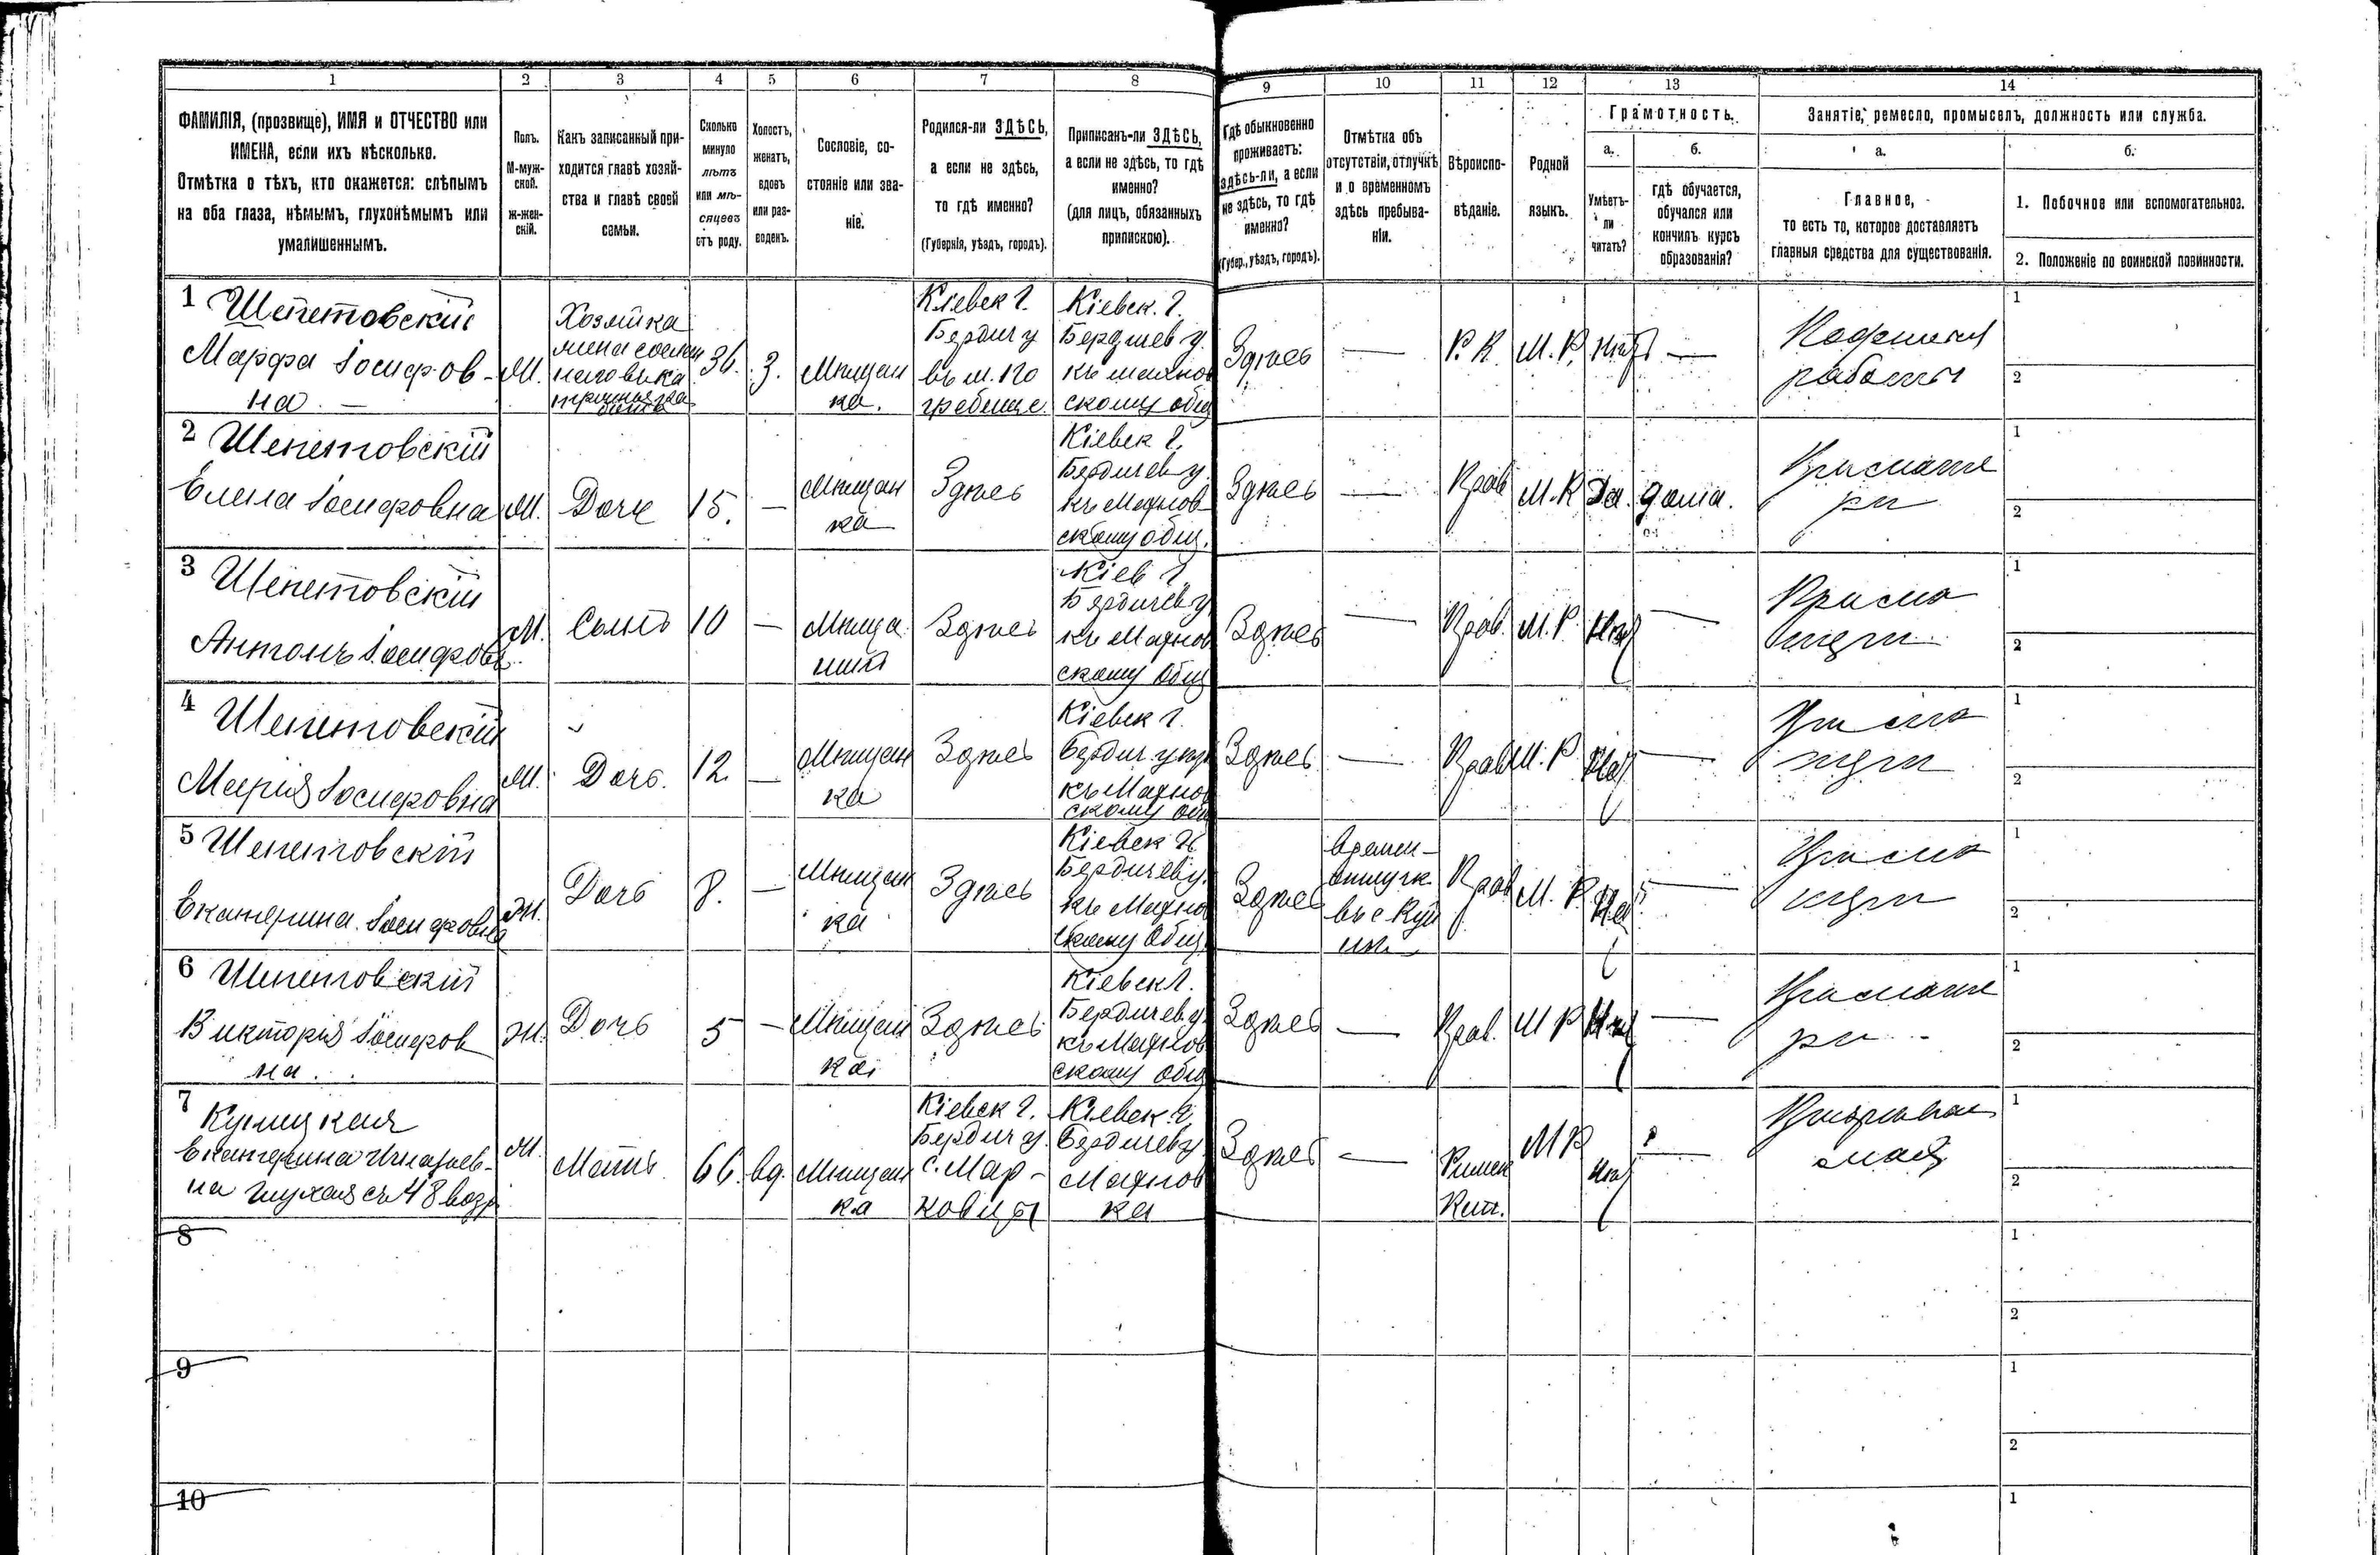 1
2
3
4
5
6
7
8
9
10
11
12
13
14
ФАМИЛІЯ, (прозвище), ИМЯ и ОТЧЕСТВО или
ИМЕНА, если ихъ нѣсколько.
Отмѣтка о тѣхъ, кто окажется: слѣпымъ
на оба глаза, нѣмымъ, глухонѣмымъ или
умалишеннымъ.
Полъ.
М-муж-
ской.
ж-жен-
скій.
Какъ записанный при-
ходится главѣ хозяй-
ства и главѣ своей
семьи.
Сколько
минуло
лѣтъ
или мѣ-
сяцевъ
отъ роду.
Холостъ,
женатъ,
вдовъ
или раз-
воденъ.
Сословіе, со-
стояніе или зва-
ніе.
Родился-ли ЗДѢСЬ,
а если не здѣсь,
то гдѣ именно?
(Губернія, уѣздъ, городъ).
Приписанъ-ли ЗДѢСЬ,
а если не здѣсь, то гдѣ
именно?
(для лицъ, обязанныхъ
припискою).
Гдѣ обыкновенно
проживаетъ:
здѣсь-ли, а если
не здѣсь, то гдѣ
именно?
(Губер., уѣздъ, городъ).
Отмѣтка объ
отсутствіи, отлучкѣ
и о временномъ
здѣсь пребыва-
ніи.
Вѣроиспо-
вѣданіе.
Родной
языкъ.
Грамотность.
а.
Умѣетъ-
ли
читать?
б.
гдѣ обучается,
обучался или
кончилъ курсъ
образованія?
Занятіе, ремесло, промыселъ, должность или служба.
а.
Главное,
то есть то, которое доставляетъ
главныя средства для существованія.
б.
1. Побочное или вспомогательное.
2. Положеніе по воинской повинности.
1 Шепетовскій
Марфа Іосифов-
на. —
М.
Хозяйка
36.
З.
Мѣщан
ка.
Кіевск г.
Бердич у
въ м. По
гребище.
Кіевск. г.
Бердичев у.
къ махнов
скому общ
Здѣсь
—
Р. К.
М. Р.
Нѣтъ
—
работы
1
2
2 Шепетовскій
Елена Іосифовна
М.
Дочь
15.
—
Мѣщан
ка
Здѣсь
Кіевск г.
Бердичев у.
къ Махнов
скому общ.
Здѣсь
—
Прав
М. Р
Да.
дома.
При мате
ри
1
2
3 Шепетовскій
Антонъ Іосифовъ
М.
Сынъ
10
—
Мѣща
нинъ
Здѣсь
Кіев г.
Бердичев у
къ Махнов
скому Общ
Здѣсь
—
Прав.
М. Р.
Нѣт
—
При ма
тери
1
2
4 Шепетовскій
Марія Іосифовна
М.
Дочь.
12.
—
Мѣщан
ка
Здѣсь
Кіевск г.
Бердич. у
къ Махнов
скому общ
Здѣсь
—
Прав
М. Р
Нѣт
—
При ма
тери
1
2
5 Шепетовскій
Екатерина Іосифовна
Ж.
Дочь
8.
—
Мѣщан
ка
Здѣсь
Кіевск г.
Бердичев у.
къ Махнов
скому Общ.
Здѣсь
Времен-
отлучк
Прав
М. Р.
Нѣт
—
При ма
тери
1
2
6 Шепетовскій
Викторія Іосифов
на.
Ж.
Дочь
5
—
Мѣщан
ка
Здѣсь
Кіевск г.
Бердичев у.
къ Махнов
скому общ
Здѣсь
—
Прав.
М Р
Нѣт
—
При мате
ри
1
2
7
Екатерина
на глухая съ 48 возр
М.
Мать
66.
вд.
Мѣщан
ка
Кіевск г.
Бердич у.
с. Мар-
ковцы
Кіевск г.
Бердичев у
Махнов
ка
Здѣсь
—
Римск
Кат.
М Р
Нѣт
—
1
2
8
1
2
9
1
2
10
1